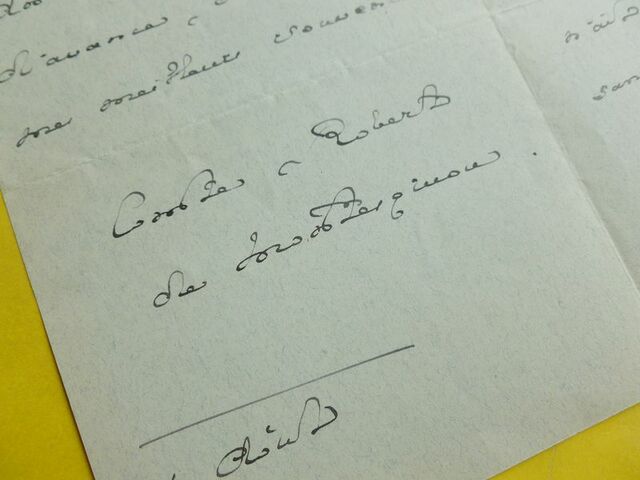 d'avance,
me meilleur souven
Comte Robert
de Montesquiou.
Août